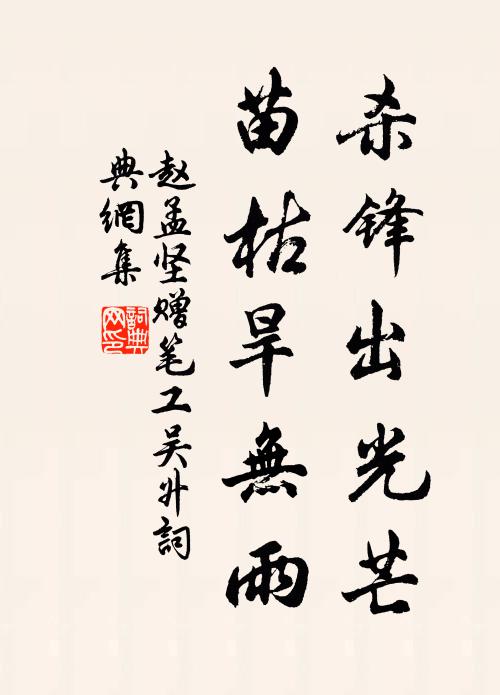 杀锋出光芒
苗枯旱無雨
赵孟坚赠笔工吴升詞
典網集
詞典
网印